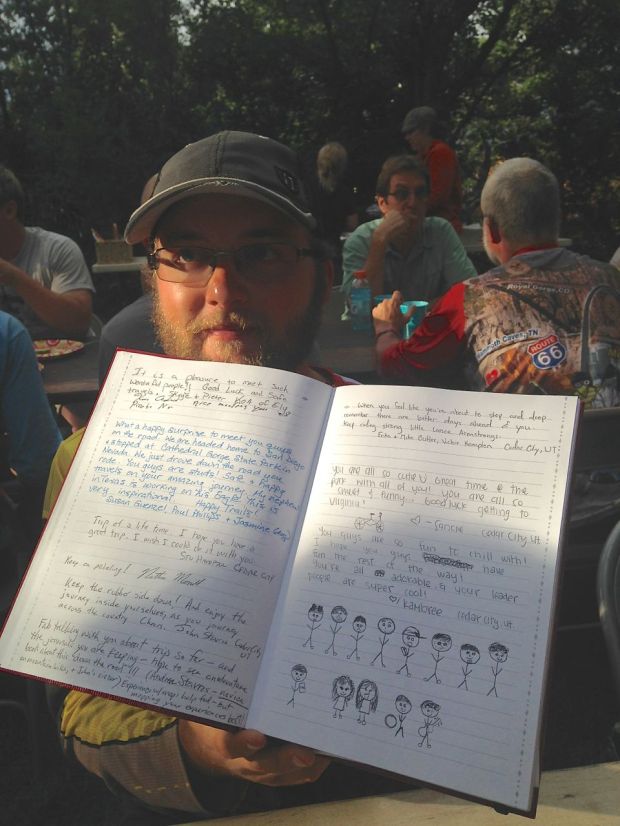 It is a pleasure to meet such
wonderful people!! Good Luck and Safe
travels
What a happy surprise to meet you guys
on the road. We are headed home to San Diego
& stopped at Cathedral Gorge State Park in
Nevada. We just drove down the road you
rode. You guys are studs! Safe & happy
travels on your amazing journey. My nephew
in Texas is working on his Eagle! This is
very inspirational! Happy Trails!
Susan Guenzel, Paul Phillips + Jasmine
Trip of a life time. I hope you have a
great trip. I wish I could do it with you
Keep on pedaling!
Keep the rubber side down! And enjoy the
journey inside yourselves, as you journey
across the country. Cheers. John Cedar City
UT
Fab talking with you about trips so far - and
the journals you are keeping - Hope to see an
book about this down the road!!!
your experiences best!
When you feel like you're about to stop and drop...
remember there are better days ahead of you.
Keep riding strong little Lance Armstrongs.
Cedar City, UT
you are all so cute! Great time @ the
park with all of you! You are all so
sweet & funny. Good luck getting to
Virginia!
Cedar City, UT
You guys are so fun to chill with!
I hope you guys have
fun the rest of the way!
You're all adorable & your leader
people are super cool!
♡ Kambree Cedar City, UT.
Royal Gorge, CO
Mammoth Caves, TN
ROUTE
66